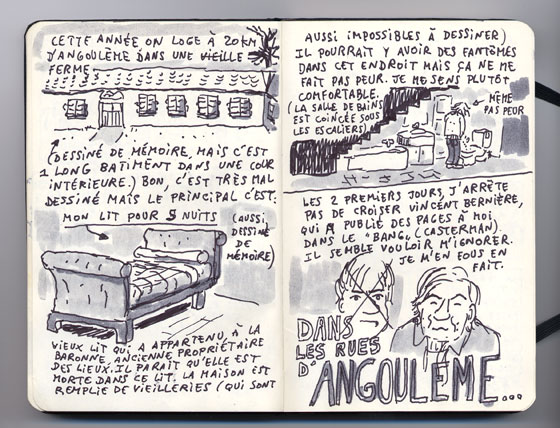 CETTE ANNÉE ON LOGE À 20 KM
D'ANGOULÈME DANS UNE VIEILLE
FERME
(DESSINÉ DE MÉMOIRE, MAIS C'EST
1 LONG BATIMENT DANS UNE COUR
INTÉRIEURE.) BON, C'EST TRÈS MAL
DESSINÉ MAIS LE PRINCIPAL C'EST:
MON LIT POUR 5 NUITS
(AUSSI,
DESSINÉ
DE
MÉMOIRE)
VIEUX LIT QUI A APPARTENU, À LA
BARONNE, ANCIENNE PROPRIÉTAIRE
DES LIEUX. IL PARAÎT QU'ELLE EST
MORTE DANS CE LIT. LA MAISON EST
REMPLIE DE VIEILLERIES (QUI SONT
AUSSI IMPOSSIBLES À DESSINER)
IL POURRAIT Y AVOIR DES FANTÔMES
DANS CET ENDROIT MAIS ÇA NE ME
FAIT PAS PEUR. JE ME SENS PLUTÔT
COMFORTABLE.
(LA SALLE DE BAINS
EST COINCÉE SOUS
LES ESCALIERS)
MÊME
PAS PEUR
LES 2 PREMIERS JOURS, J'ARRÊTE
PAS DE CROISER VINCENT BERNIÈRE,
QUI A PUBLIÉ DES PAGES À MOI
DANS LE "BANG" (CASTERMAN).
IL SEMBLE VOULOIR M'IGNORER.
JE M'EN FOUS EN
FAIT.
DANS
LES RUES
D'ANGOULÈME...